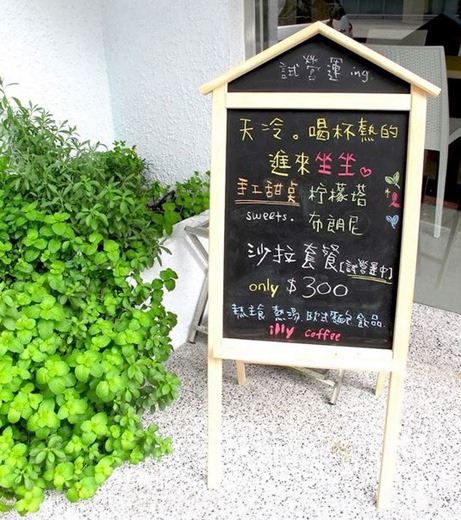 試營運ing
天冷。喝杯熱的
進來坐坐
手工甜點 柠檬塔
sweets. 布朗尼
沙拉套餐[試營運中]
only $300
熱主食 熱湯 歐式麵包 飲品
illy coffee